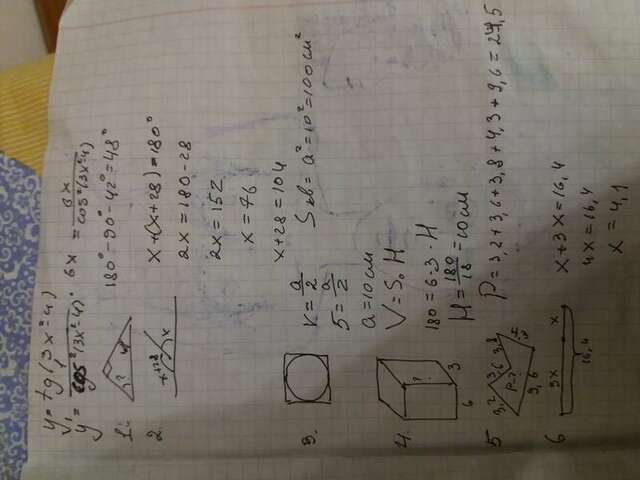 y = tg(3x²-4)
y' = 1/cos²(3x²-4) · 6x = 6x/cos²(3x²-4)
1. ? 42° 180° - 90° - 42° = 48°
2. x+28 x x + (x+28) = 180°
2x = 180 - 28
2x = 152
x = 76
x+28 = 104
3. r = a/2 Sкв = a² = 10² = 100 см²
5 = a/2
a = 10 см
4. ? 6 3 V = S₀ H
180 = 6·3·H
H = 180/18 = 10 см
5 3,2 3,6 3,8 4,3 9,6 P-? P = 3,2 + 3,6 + 3,8 + 4,3 + 9,6 = 24,5
6 3x x 16,4 x + 3x = 16,4
4x = 16,4
x = 4,1